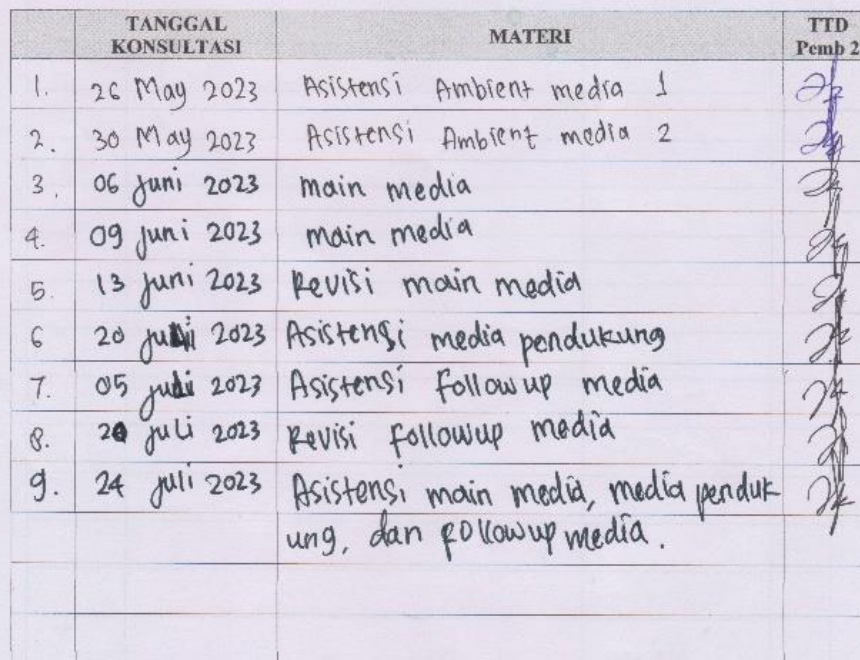 TANGGAL KONSULTASI MATERI TTD Pemb 2
1. 26 May 2023 Asistensi Ambient media 1
2. 30 May 2023 Asistensi Ambient media 2
3. 06 juni 2023 main media
4. 09 juni 2023 main media
5. 13 juni 2023 Revisi main media
6 20 2023 Asistensi media pendukung
7. 05 juli 2023 Asistensi followup media
8. juli 2023 Revisi followup media
9. 24 juli 2023 Asistensi main media, media penduk
ung, dan followup media.